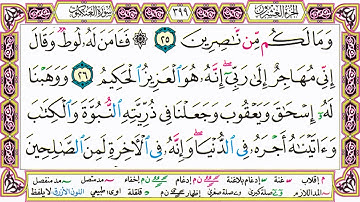 الجزء العشرون ٣٩٩ سورة العنكبوت
وَمَا لَكُم مِّن نَّٰصِرِينَ ٢٥ ۞ فَـَٔامَنَ لَهُۥ لُوطٌۘ وَقَالَ
إِنِّي مُهَاجِرٌ إِلَىٰ رَبِّيٓۖ إِنَّهُۥ هُوَ ٱلْعَزِيزُ ٱلْحَكِيمُ ٢٦ وَوَهَبْنَا
لَهُۥٓ إِسْحَٰقَ وَيَعْقُوبَ وَجَعَلْنَا فِي ذُرِّيَّتِهِ ٱلنُّبُوَّةَ وَٱلْكِتَٰبَ
وَءَاتَيْنَٰهُ أَجْرَهُۥ فِي ٱلدُّنْيَاۖ وَإِنَّهُۥ فِي ٱلْءَاخِرَةِ لَمِنَ ٱلصَّٰلِحِينَ